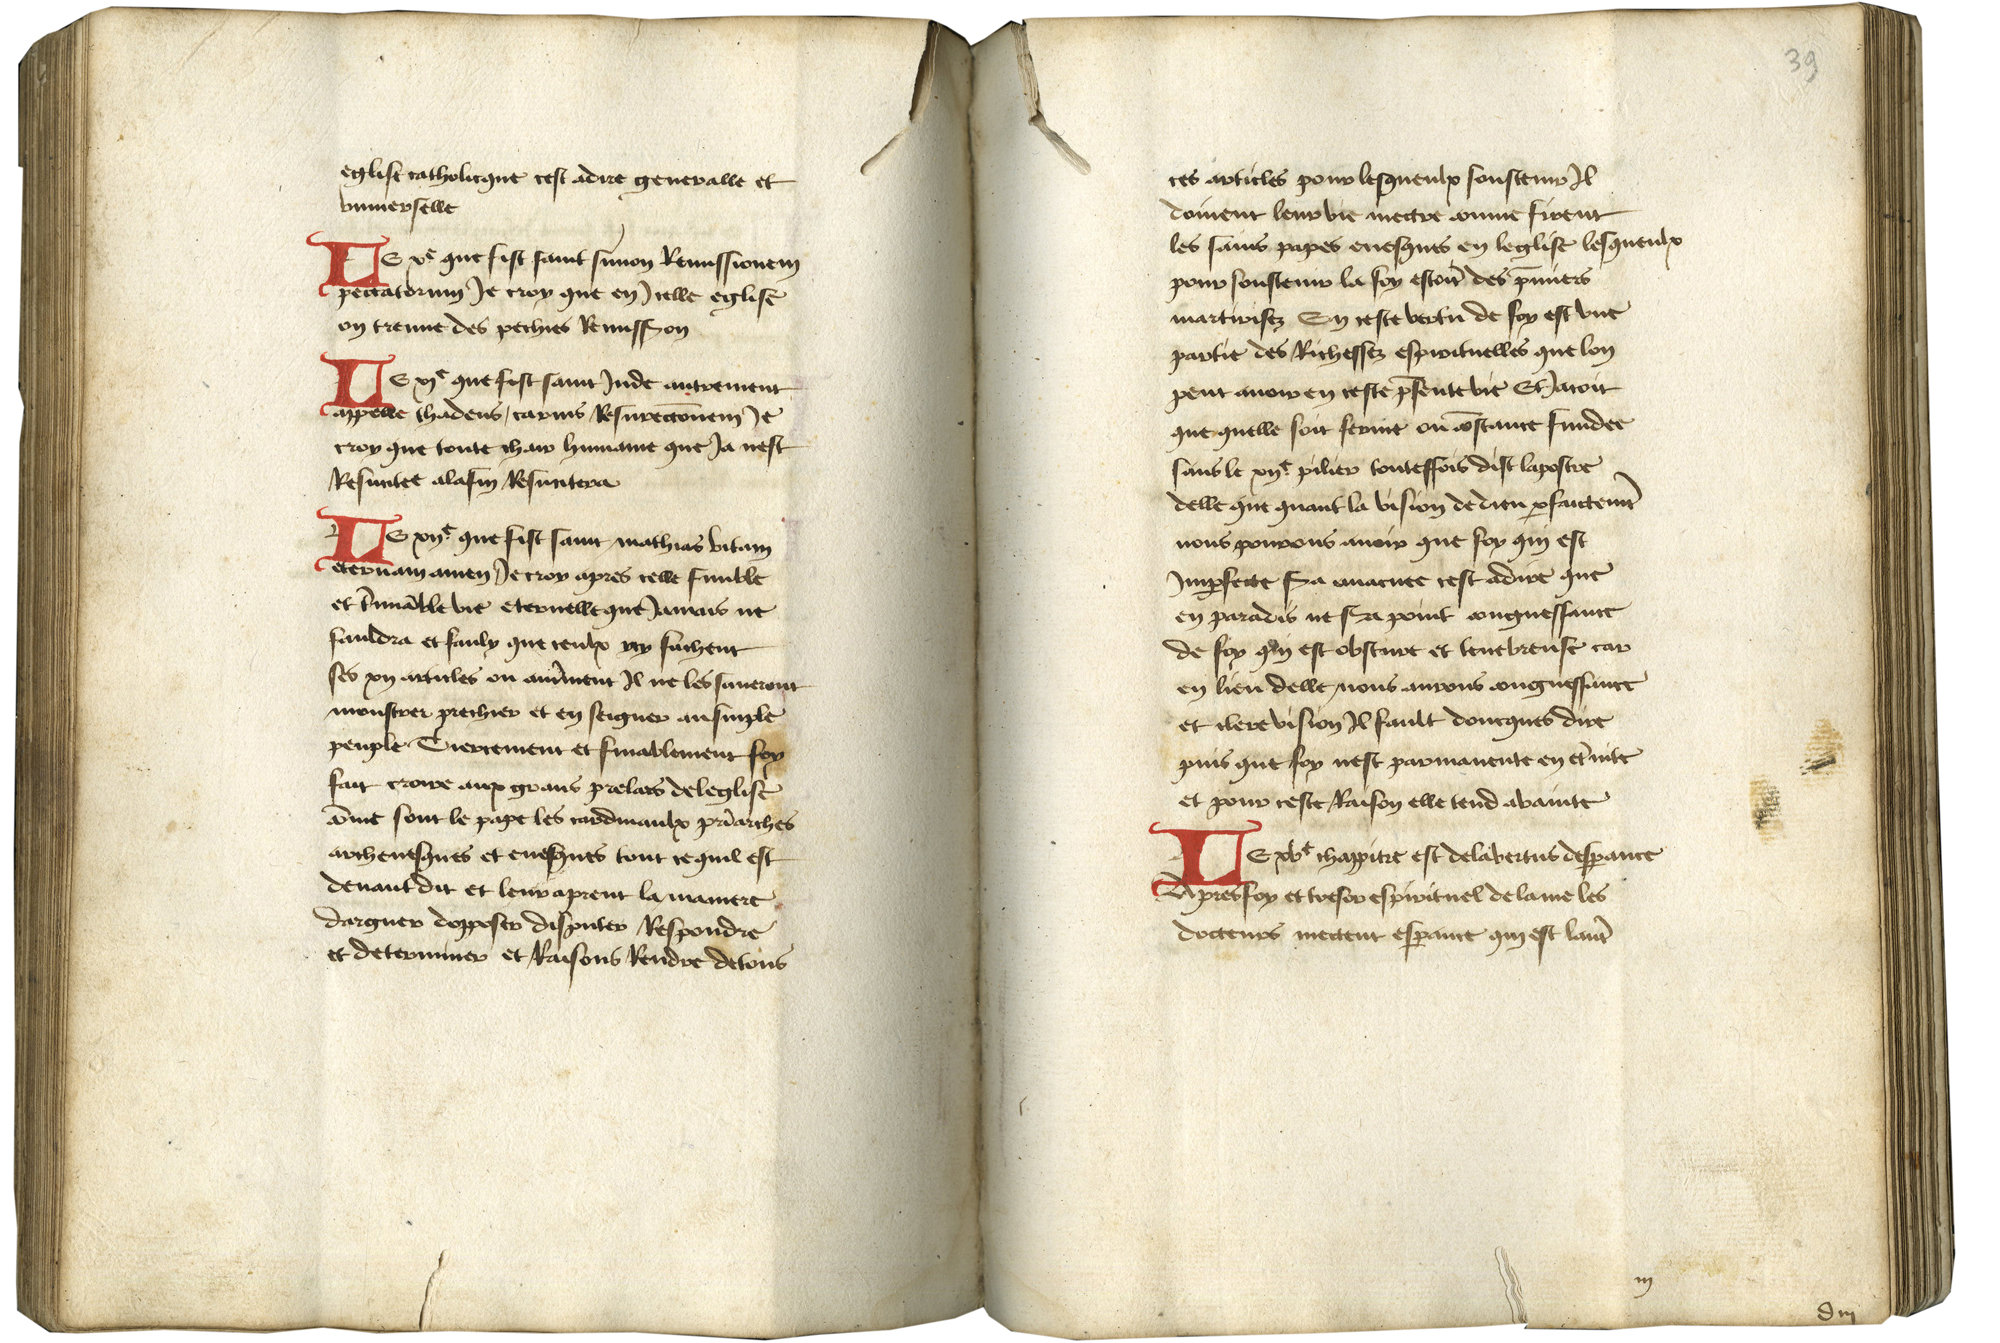 eglise catholicque cest adire generalle et
vniuerselle
LE xe que fist saint simon Remissionem
peccatorum Je croy que en Jcelle eglise
on treuue des pechies Remission
LE xje que fist saint Jude autrement
appelle thadeus / carnis Resurectionem Je
croy que toute chair humaine que Ja nest
Resucitee alafin Resucitera
LE xije que fist saint mathias vitam
eternam amen Je croy apres celle
et vie eternelle que Jamais ne
fauldra et que ceulx sachent
ses xij articles ou autrement Jl ne les saueront
monstrer prechier et en seigner au simple
peuple Tiercement et finablement foy
fait croire aux grans prelats deleglise
come sont le pape les cardinaulx priarches
archeuesques et euesques tout ce quil est
deuant dit et leur aprent la maniere
darguer dopposer disputer Respondre
et determiner et Raisons Rendre detous
39
ces articles pour lesqueulx soustenir Jl
doiuent leur vie mectre comme firent
les sains papes euesques en leglise lesqueulx
pour soustenir la foy estoit des pmiers
martirisez En ceste vertu de foy est vne
partie des Richessez espirituelles que lon
peut auoir en ceste psente vie Et Jacoit
que quelle soit ferme ou constance fundee
sans le xije pilier touteffois dist lapostre
delle que quant la vision de dieu pfaictemt
nous pourons auoir que foy qui est
Jmpfecte sera euacuee cest adire que
en paradis ne sera point congnessance
de foy qui est obscure et tenebreuse car
en lieu delle nous aurons congnessance
et clere vision Jl fault doncques dire
puis que foy nest parmanente en etnite
et pour ceste Raison elle tend
LE xve chappitre est delavertus desperance
Apres foy et tresor espirituel de lame les
docteurs mectent esperance qui est laut
iij
d iij